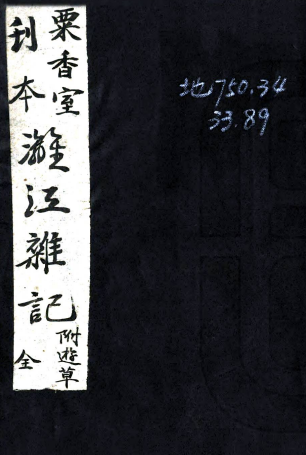 地750.34
33.89
粟香室
刊本
灕江雜記
附遊草
全